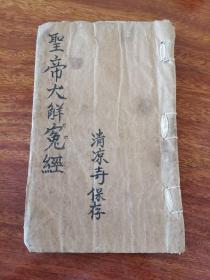 聖帝大解寃經
清凉寺保存